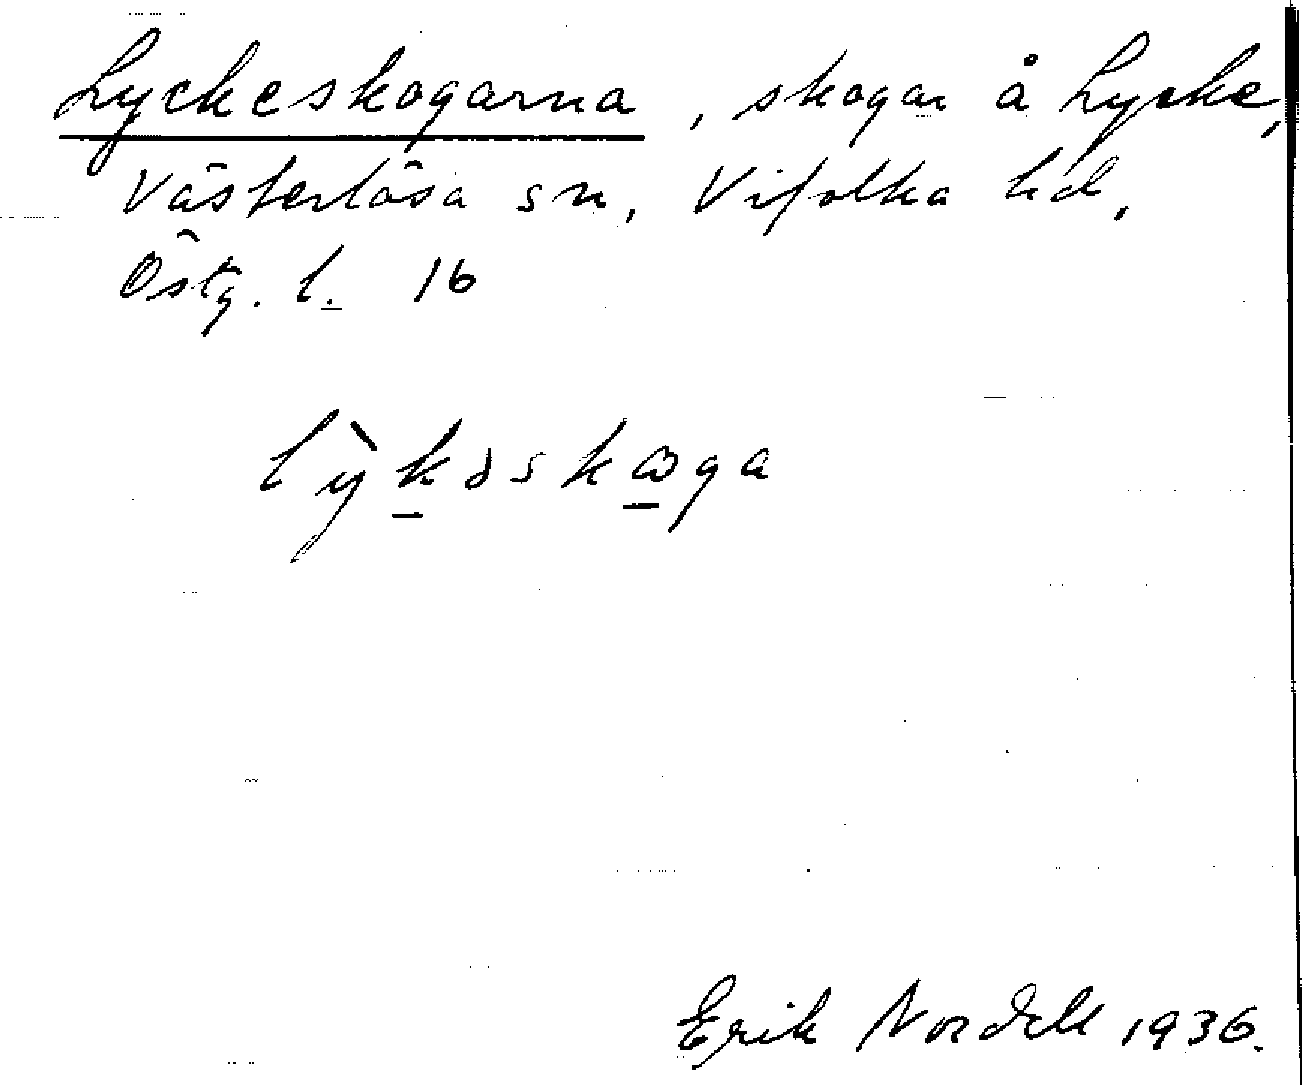 Lyckeskogarna, skogar å Lycke,
Västerlösa sn, Vifolka hd,
Östg. l. 16
lỳkəskωga
Erik Nordell 1936.